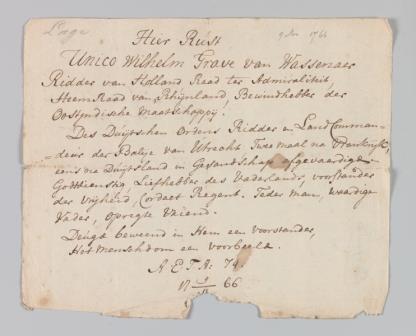 Lage
9 Nov 1766
Hier Rúst
Unico Wilhelm Grave van Wassenaer
Ridder van Holland Raad ter Admiraliteit,
Heem Raad van Rhijnland, Bewindhebber der
Oostindische Maatschappij,
Des Duijtschen Ordens Ridder en Land Comman-
=deur der Balije van Utrecht. Twe maal na Frankrijk,
eens na Duijtsland in Gesandschap afgevaardigd
Godtdienstig, Liefhebber des Vaderlands, voorstander
der Vrijheid, Cordaet Regent. Teder man, waardige
Vader, opregte Vriend.
Deúgd beweend in Hem een voorstander,
Het menschdom een voorbeeld.
A E T A: 74.
66